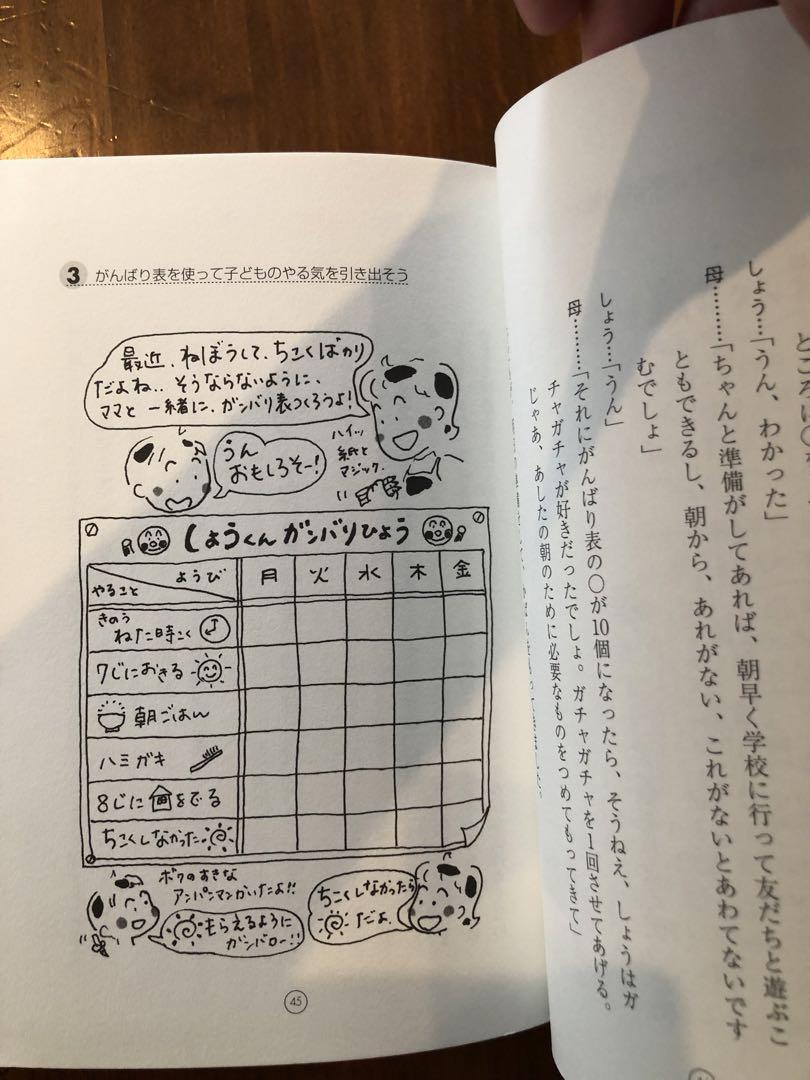 3 がんばり表を使って子どものやる気を引き出そう
最近、ねぼうして、ちこくばかり
だよね.. そうならないように、
ママと一緒に、ガンバリ表つくろうよ!
うん
おもしろそー!
ハイッ
紙と
マジック.
しょうくんガンバリひょう
ようび
やること
月 火 水 木 金
きのう
ねた時こく
7じにおきる
朝ごはん
ハミガキ
8じに をでる
ちこくしなかった
ボクのすきな
アンパンマンかいたよ!!
もらえるように
ガンバロー!!
ちこくしなかったら
だよ.
45
しょう…「うん、わかった」
母………「ちゃんと準備がしてあれば、朝早く学校に行って友だちと遊ぶこ
ともできるし、朝から、あれがない、これがないとあわてないです
むでしょ」
しょう…「うん」
母………「それにがんばり表の○が10個になったら、そうねえ、しょうはガ
チャガチャが好きだったでしょ。ガチャガチャを1回させてあげる。
じゃあ、あしたの朝のために必要なものをつめてもってきて」